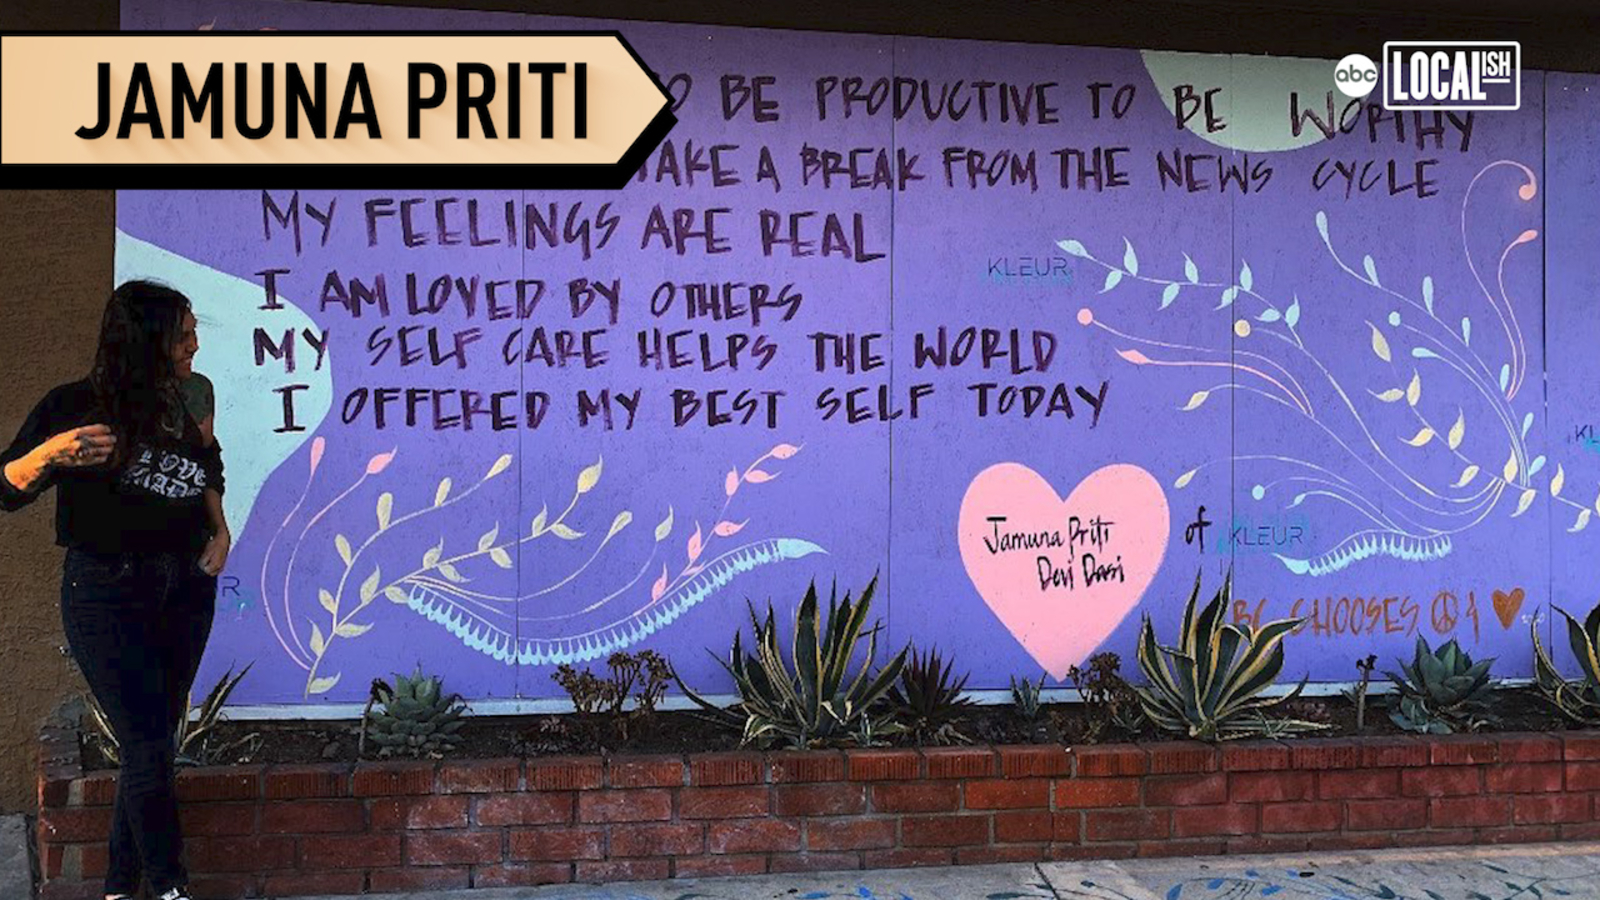 JAMUNA PRITI
abc LOCALISH
O BE PRODUCTIVE TO BE WORTHY
TAKE A BREAK FROM THE NEWS CYCLE
MY FEELINGS ARE REAL
I AM LOVED BY OTHERS
MY SELF CARE HELPS THE WORLD
I OFFERED MY BEST SELF TODAY
KLEUR
Jamuna Priti
Devi Dasi
of KLEUR
BC CHOOSES
LOVE
MADE